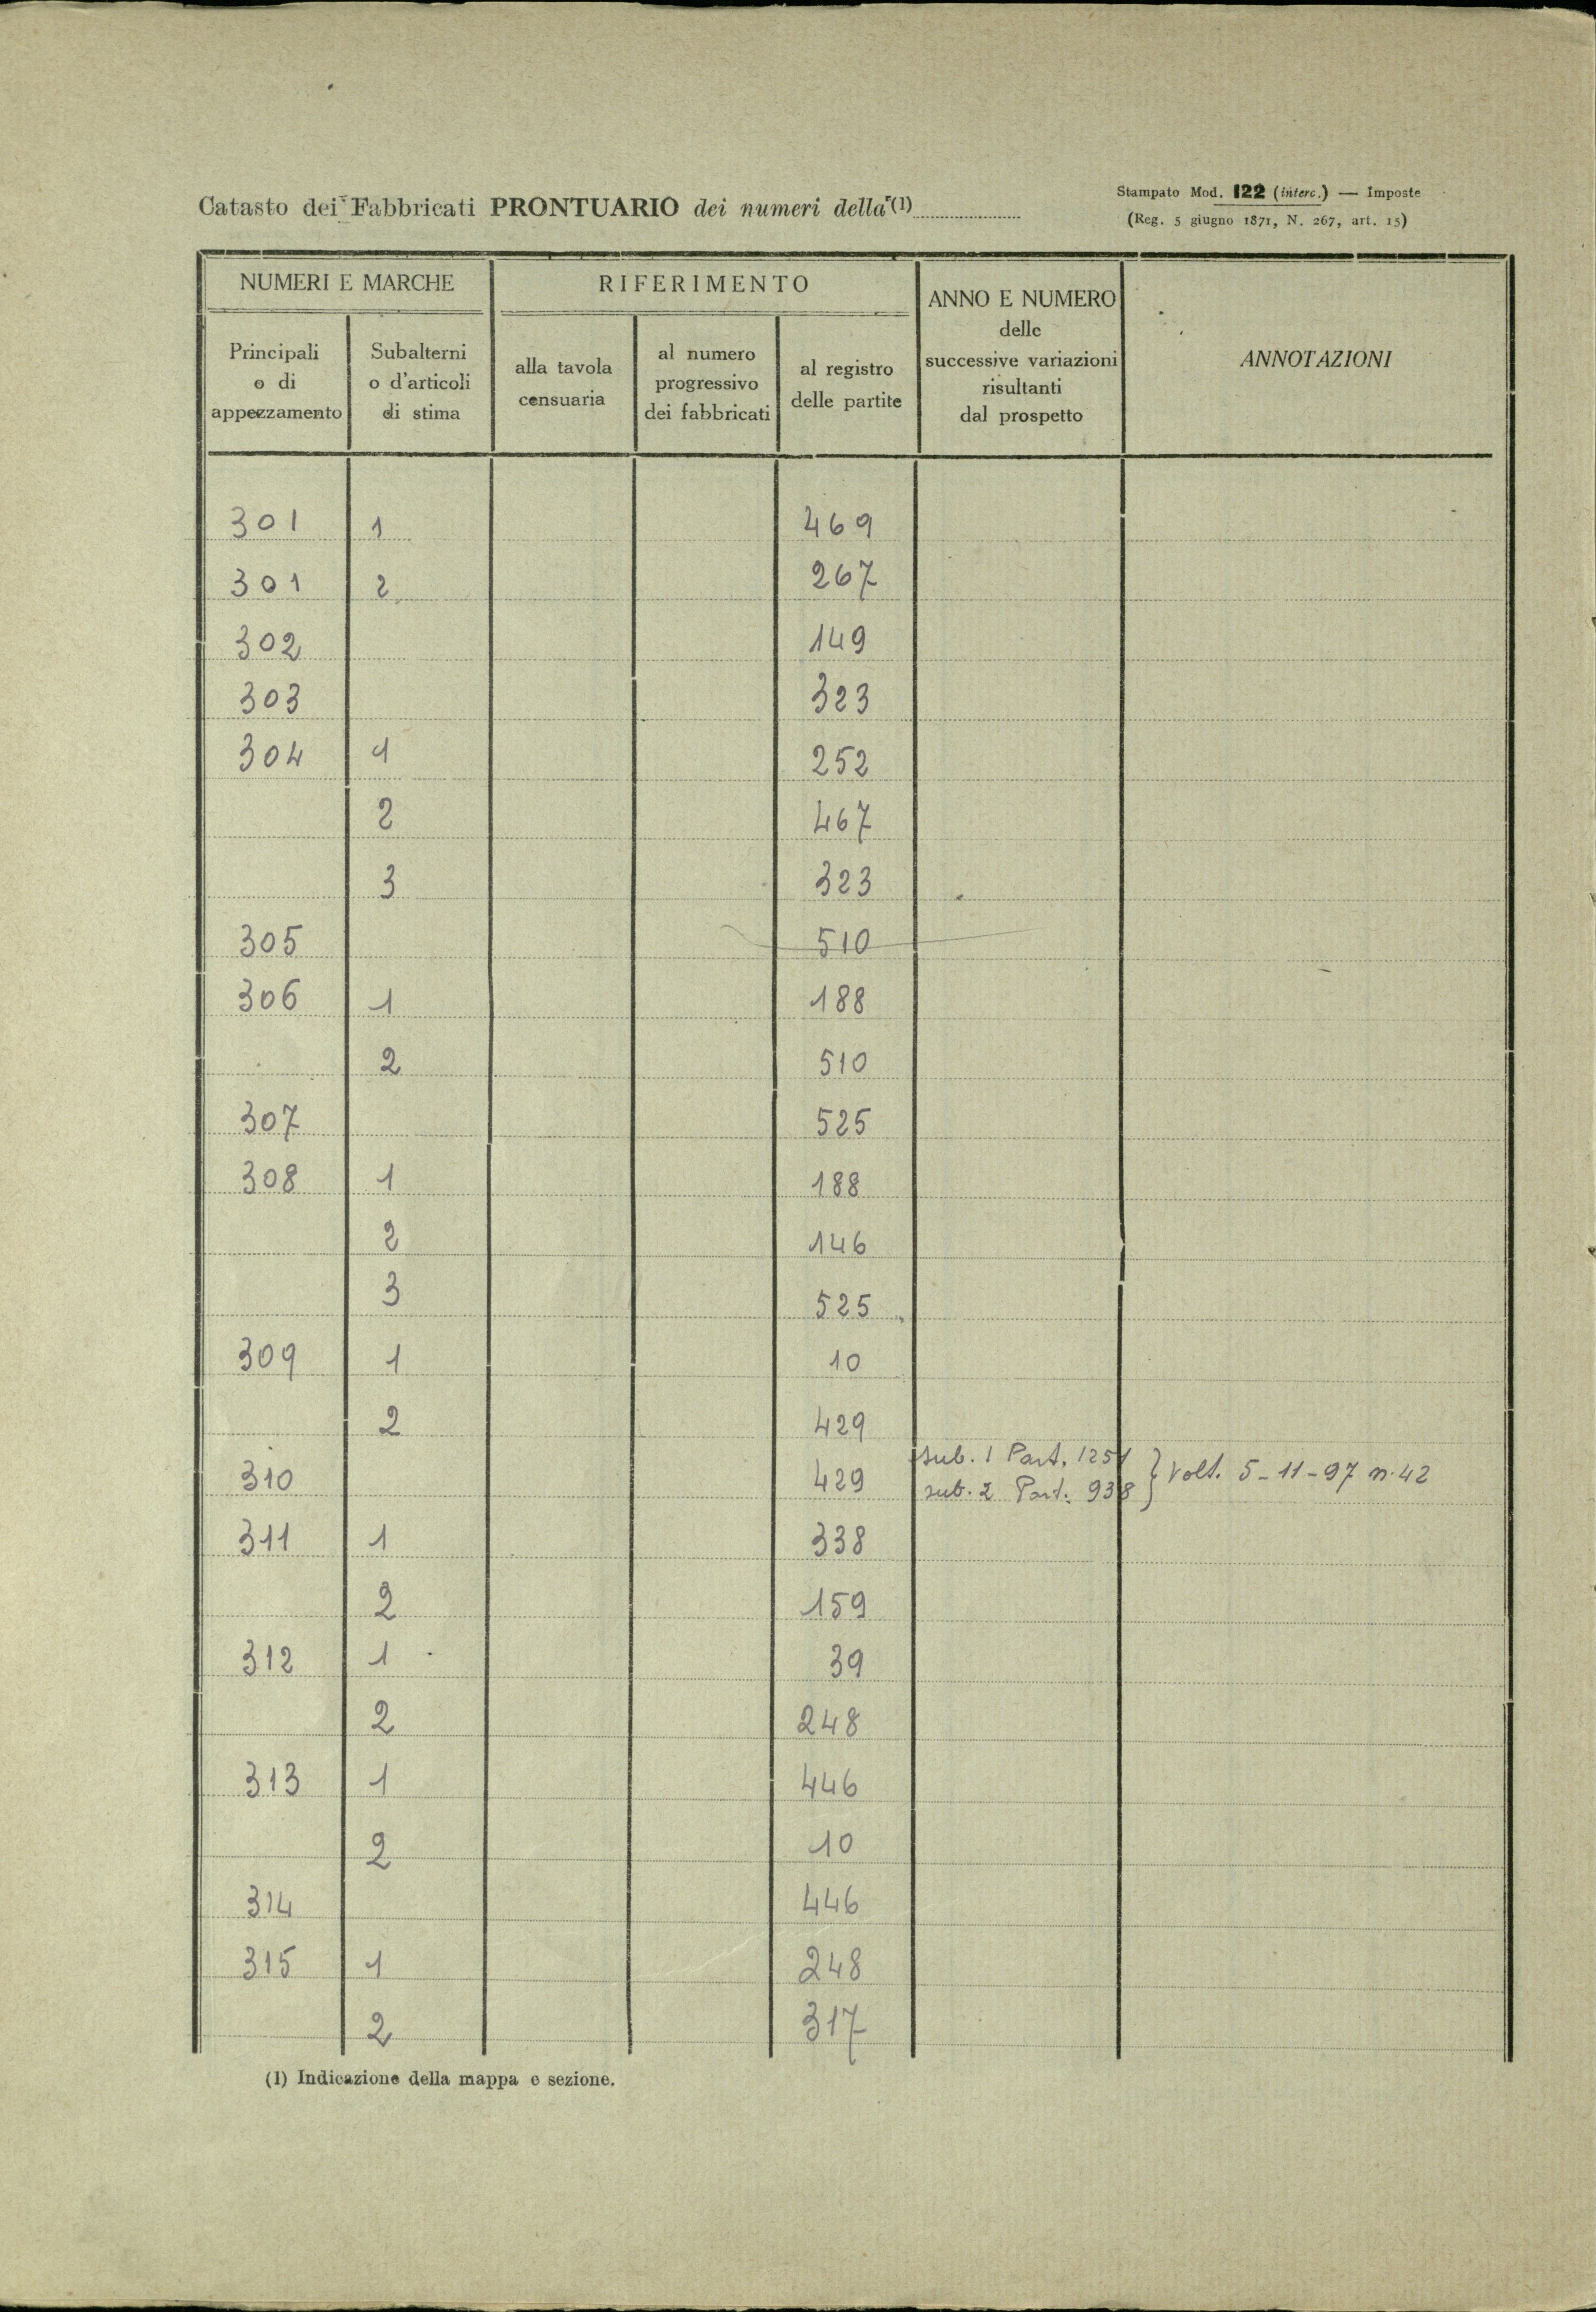 Catasto dei Fabbricati PRONTUARIO dei numeri della (1)
Stampato Mod. 122 (interc.) — Imposte
(Reg. 5 giugno 1871, N. 267, art. 15)
NUMERI E MARCHE
RIFERIMENTO
ANNO E NUMERO
delle
successive variazioni
risultanti
dal prospetto
ANNOTAZIONI
Principali
o di
appezzamento
Subalterni
o d'articoli
di stima
alla tavola
censuaria
al numero
progressivo
dei fabbricati
al registro
delle partite
301 1 469
301 2 267
302 149
303 323
304 1 252
2 467
3 323
305 510
306 1 188
2 510
307 525
308 1 188
2 146
3 525
309 1 10
2 429
310 429 sub. 1 Part. 1251
sub. 2 Part. 938 } Volt. 5-11-97 n. 42
311 1 338
2 159
312 1 39
2 248
313 1 446
2 10
314 446
315 1 248
2 317
(1) Indicazione della mappa e sezione.